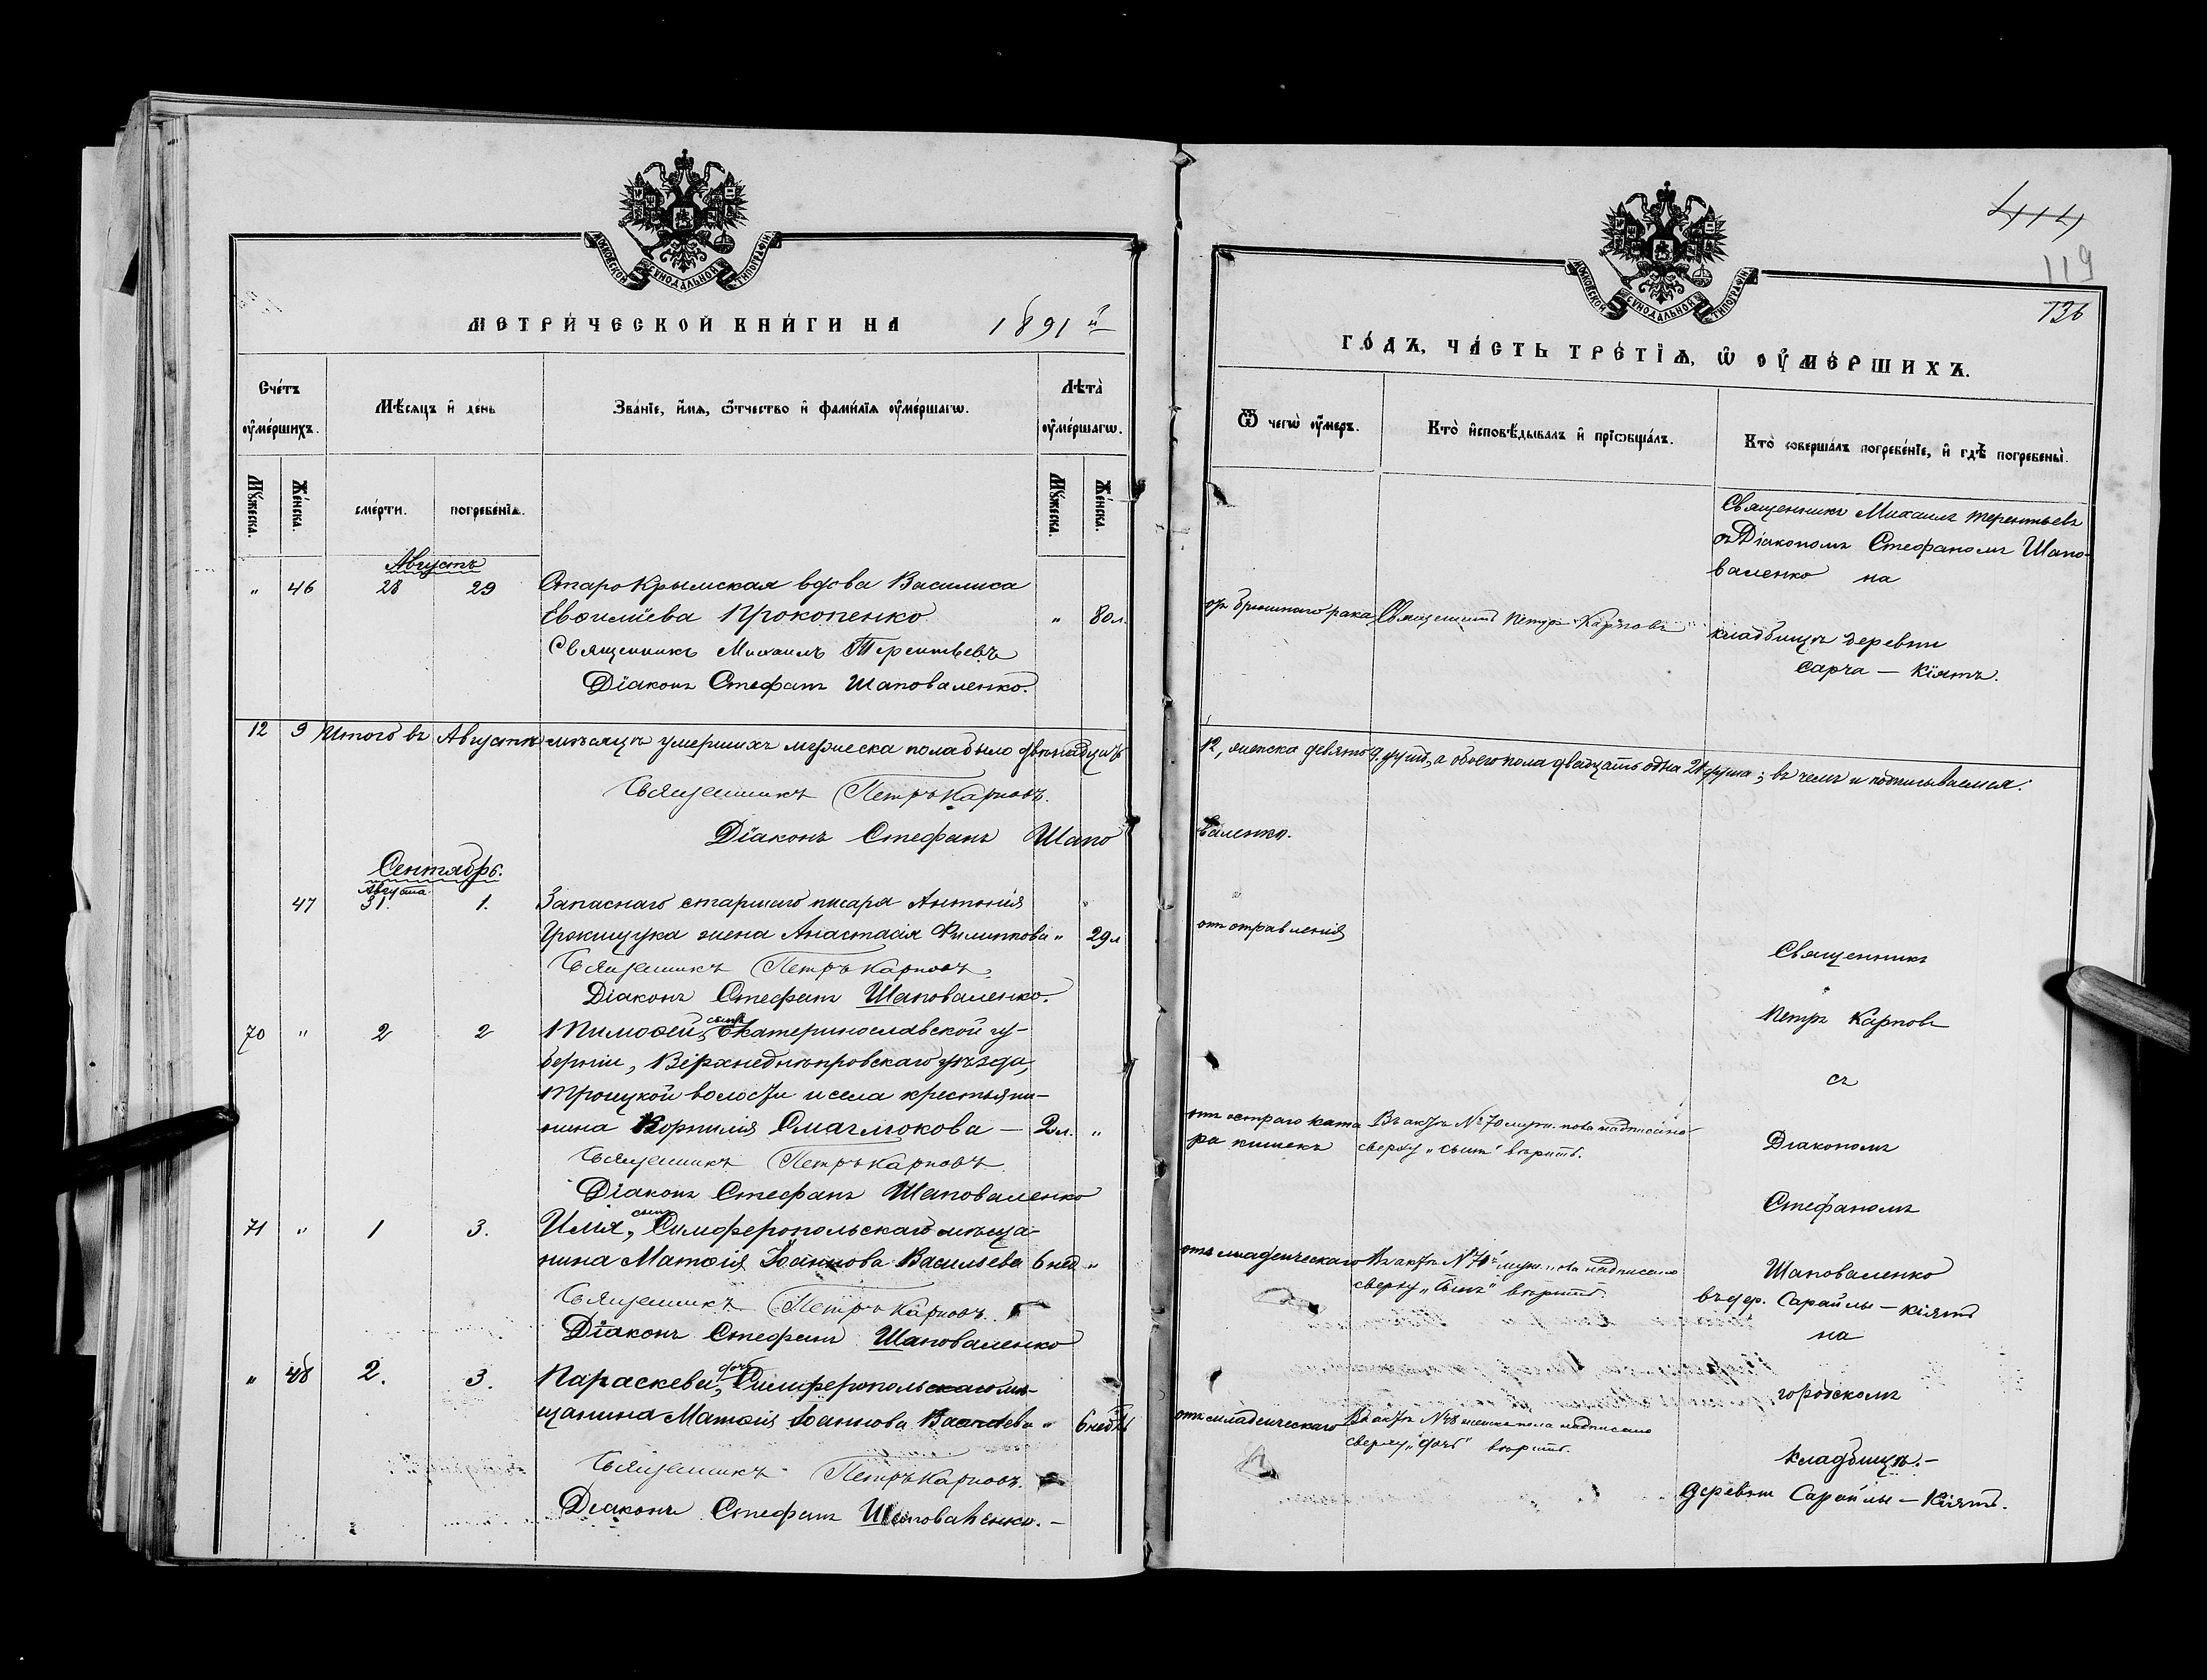 МОСКОВСКОЙ СѴНОДАЛЬНОЙ ТИПОГРАФІИ
МЕТРИЧЕСКОЙ КНИГИ НА 1891й
Счетъ оумершихъ.
Мѣсяцъ и день
Званіе, имя, ѿтчество и фамилія оумершагѡ.
Лѣта оумершагѡ.
Мужеска.
Женска.
смерти.
погребенія.
Мужеска.
Женска.
Августъ
" 46 28 29 Старо Крымская вдова Василиса
Евѳиміева Прокопенко " 80 л.
Священникъ Михаилъ Терентьевъ
Діаконъ Стефанъ Шаповаленко.
12 9 Итого въ Августѣ мѣсяцѣ умершихъ мужеска пола было двѣнадцать
Священникъ Петръ Карповъ.
Діаконъ Стефанъ Шапо
Сентябрь.
Августа
47 31. 1. Запаснаго старшаго писаря Антонія
жена Анастасія Филиппова " 29 л
Священникъ Петръ Карповъ.
Діаконъ Стефанъ Шаповаленко.
70 " 2 2 Тимоѳей, сынъ Екатеринославской гу-
берніи, Верхнеднѣпровскаго уѣзда,
Троицкой волости и села крестьяни-
нина Корнилія – 2 л. "
Священникъ Петръ Карповъ
Діаконъ Стефанъ Шаповаленко
71 " 1 3. Илія, сынъ Симферопольскаго мѣща-
нина Матѳія Іоаннова Васильева 6 нед "
Священникъ Петръ Карповъ.
Діаконъ Стефанъ Шаповаленко
" 48 2. 3. Параскева, дочь Симферопольскаго мѣ-
щанина Матѳія Іоаннова Васильева " 6 нед
Священникъ Петръ Карповъ.
Діаконъ Стефанъ Шаповаленко. –
414
119
136
МОСКОВСКОЙ СѴНОДАЛЬНОЙ ТИПОГРАФІИ
ГОДЪ, ЧАСТЬ ТРЕТІЯ, Ѡ ОУМЕРШИХЪ.
Ѿ чегѡ оумеръ.
Кто исповѣдывалъ и пріѡбщалъ.
Кто совершалъ погребеніе, и гдѣ погребены.
Священникъ Михаилъ Терентьевъ
съ Діакономъ Стефаномъ Шапо-
валенко на
отъ брюшнаго рака Священникъ Петръ Карповъ
кладбищѣ деревни
Сарча – Кіятъ.
12, женска девять 9 душъ, а обоего пола двадцать одна 21 душа; въ чемъ и подписываемся.
валенко.
отъ отравленія
Священникъ
Петръ Карповъ
съ
отъ остраго ката
ра кишекъ
Въ актѣ № 70 муж. пола надписано
сверху „сынъ" вѣрить.
Діакономъ
Стефаномъ
отъ младенческаго
Въ актѣ № 71 муж. пола надписано
сверху „Сынъ" вѣрить.
Шаповаленко
въ дер. Сарайлы – Кіятъ
на
городскомъ
отъ младенческаго
Въ актѣ № 48 женска пола надписано
сверху „дочь" вѣрить.
кладбищѣ. –
деревни Сарайлы – Кіятъ.